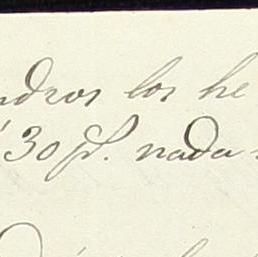 ndros los he
30 pf. nada